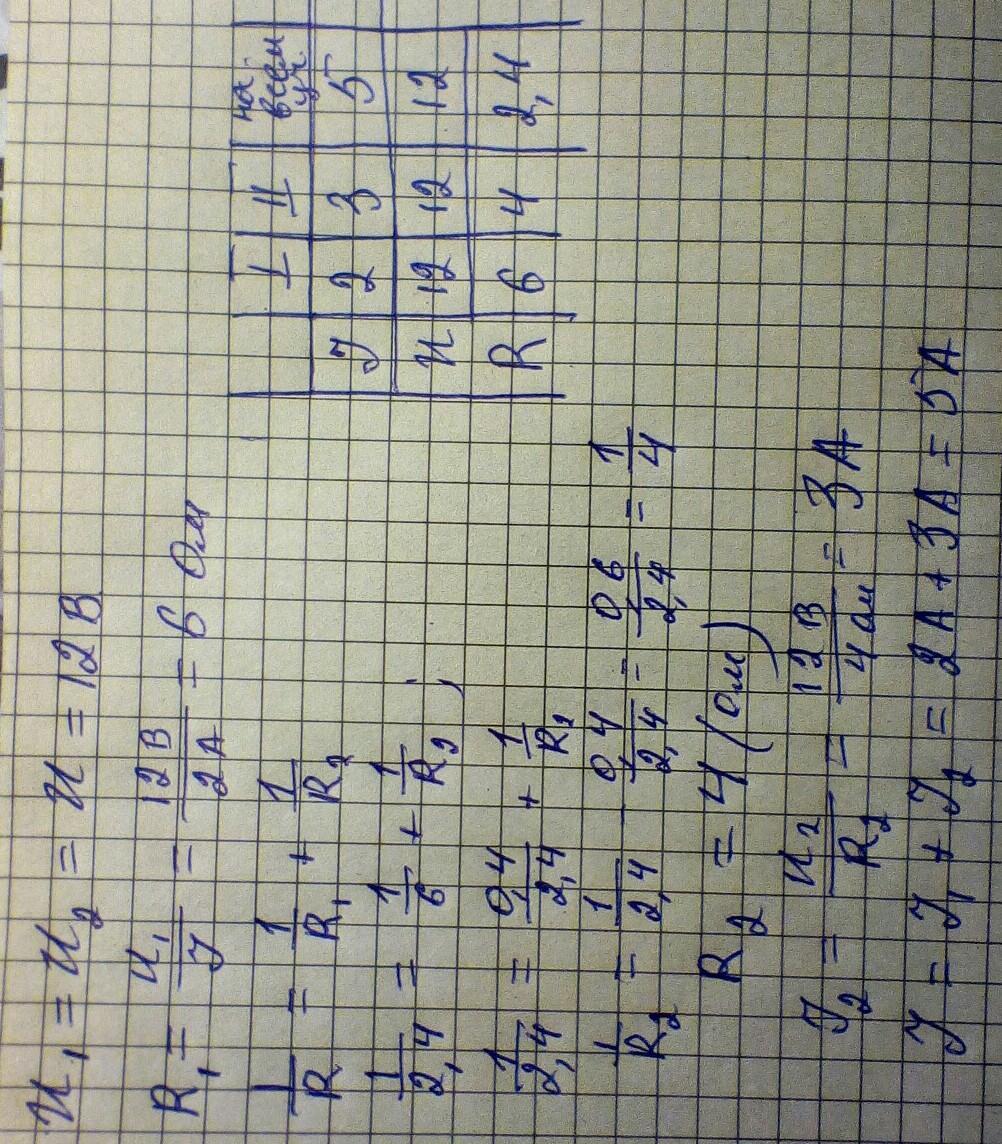 U₁ = U₂ = U = 12 В
R₁ = U₁/J = 12 В/2 А = 6 Ом
1/R = 1/R₁ + 1/R₂
1/2,4 = 1/6 + 1/R₂;
1/2,4 = 0,4/2,4 + 1/R₂
1/R₂ = 1/2,4 - 0,4/2,4 = 0,6/2,4 = 1/4
R₂ = 4 (Ом)
J₂ = U₂/R₂ = 12 В/4 Ом = 3 А
J = J₁ + J₂ = 2 А + 3 А = 5 А
I II на всём уч.
J 2 3 5
U 12 12 12
R 6 4 2,4